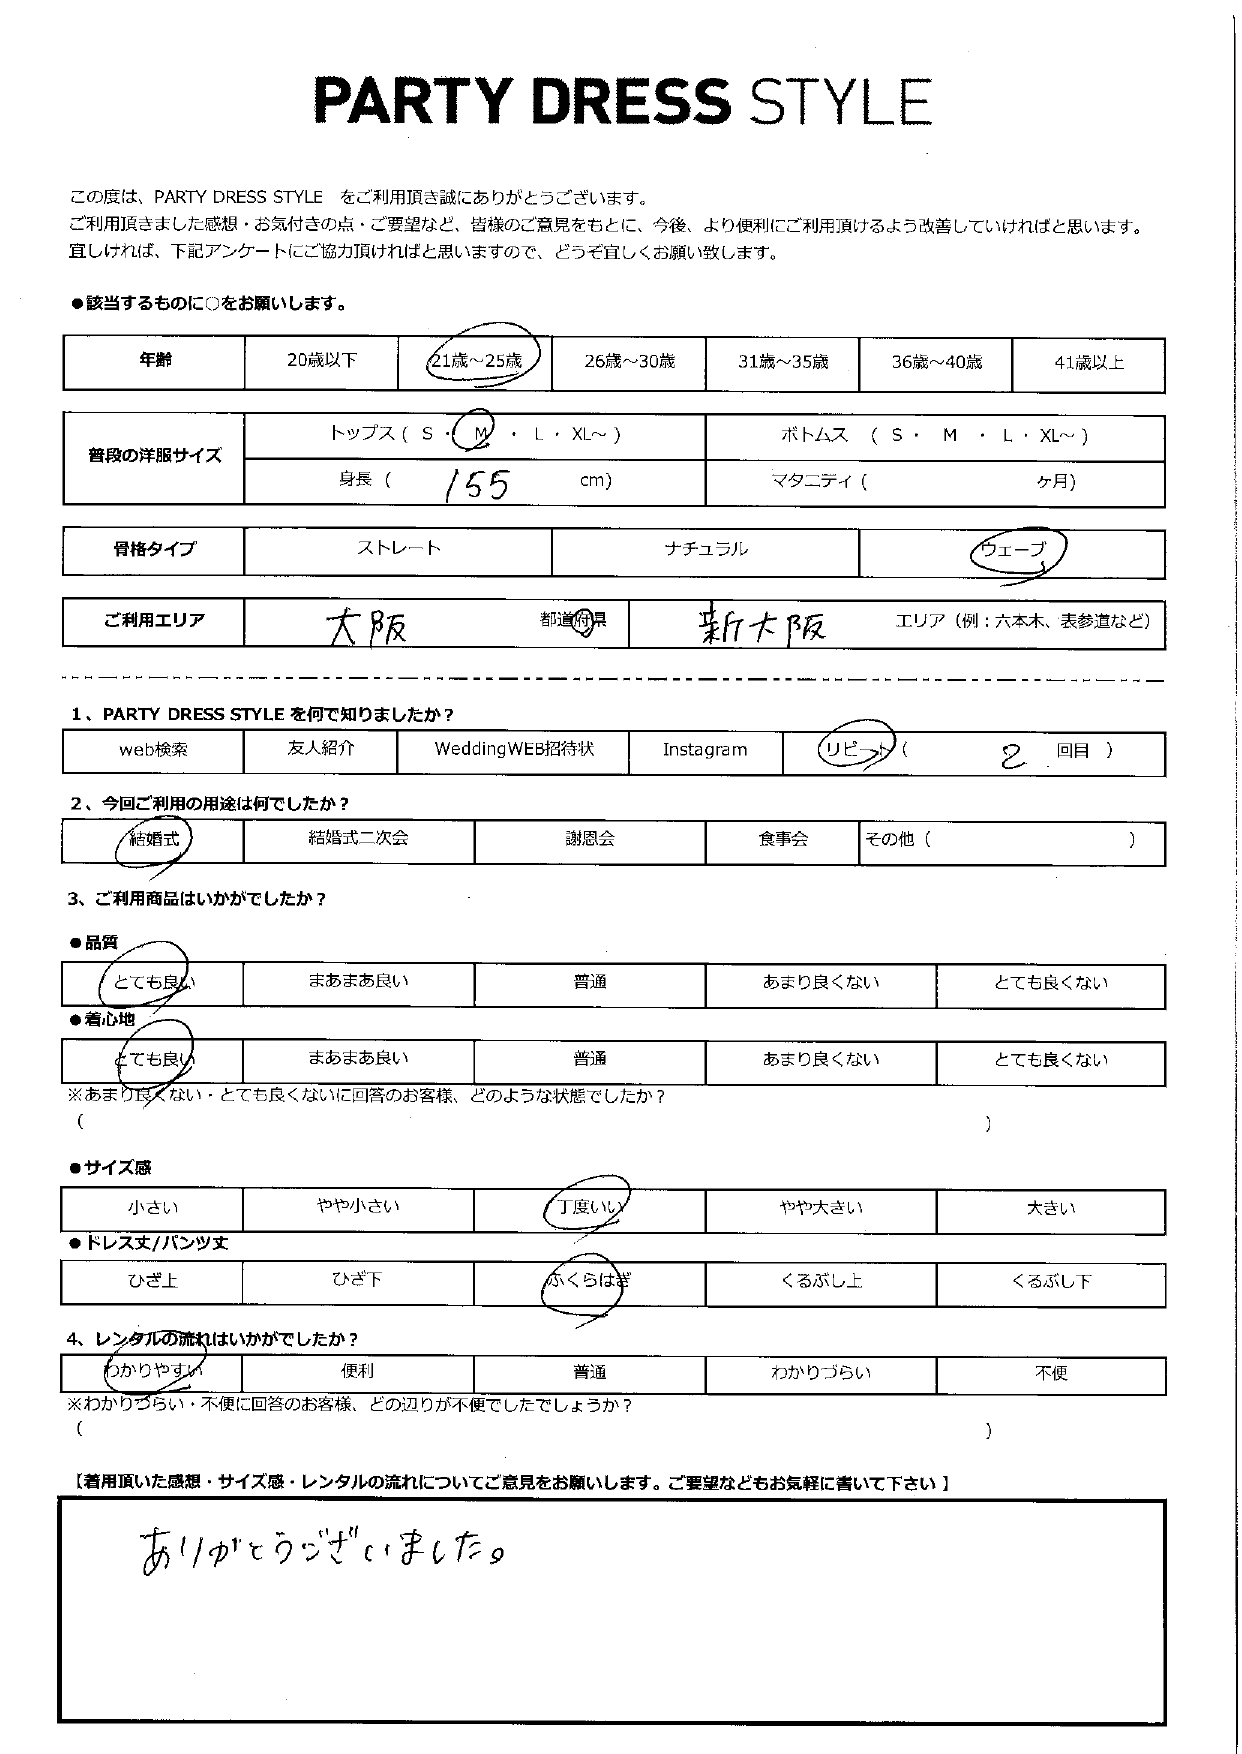 PARTY DRESS STYLE
この度は、PARTY DRESS STYLE　をご利用頂き誠にありがとうございます。
ご利用頂きました感想・お気付きの点・ご要望など、皆様のご意見をもとに、今後、より便利にご利用頂けるよう改善していければと思います。
宜しければ、下記アンケートにご協力頂ければと思いますので、どうぞ宜しくお願い致します。
●該当するものに○をお願いします。
年齢 20歳以下 21歳～25歳 26歳～30歳 31歳～35歳 36歳～40歳 41歳以上
普段の洋服サイズ
トップス ( S ・ M ・ L ・ XL～ ) ボトムス ( S ・ M ・ L ・ XL～ )
身長 ( 155 cm) マタニティ ( ヶ月)
骨格タイプ ストレート ナチュラル ウェーブ
ご利用エリア 大阪 都道府県 新大阪 エリア（例：六本木、表参道など）
1、PARTY DRESS STYLE を何で知りましたか？
web検索 友人紹介 WeddingWEB招待状 Instagram リピート ( 2 回目 )
2、今回ご利用の用途は何でしたか？
結婚式 結婚式二次会 謝恩会 食事会 その他 ( )
3、ご利用商品はいかがでしたか？
●品質
とても良い まあまあ良い 普通 あまり良くない とても良くない
●着心地
とても良い まあまあ良い 普通 あまり良くない とても良くない
※あまり良くない・とても良くないに回答のお客様、どのような状態でしたか？
( )
●サイズ感
小さい やや小さい 丁度いい やや大きい 大きい
●ドレス丈/パンツ丈
ひざ上 ひざ下 ふくらはぎ くるぶし上 くるぶし下
4、レンタルの流れはいかがでしたか？
わかりやすい 便利 普通 わかりづらい 不便
※わかりづらい・不便に回答のお客様、どの辺りが不便でしたでしょうか？
( )
【着用頂いた感想・サイズ感・レンタルの流れについてご意見をお願いします。ご要望などもお気軽に書いて下さい】
ありがとうございました。